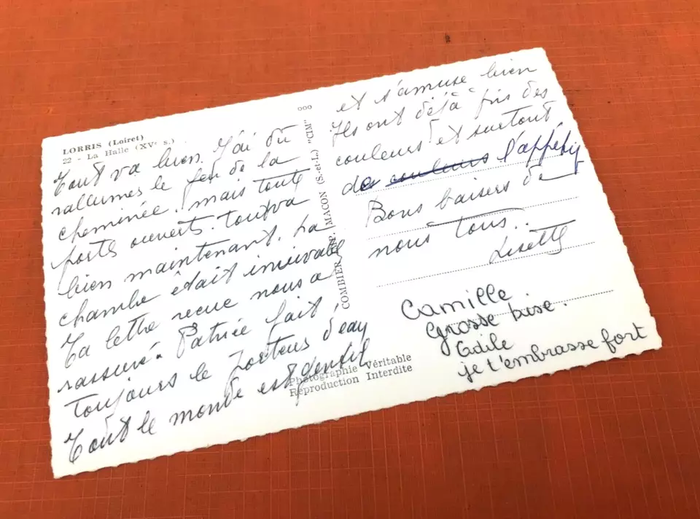 LORRIS (Loiret)
22 - La Halle (XVe s.)
Tout va bien. J'ai dû
rallumer le feu de la
cheminée. mais toute
porte ouverte. tout va
bien maintenant. La
chambre était
Ta lettre reçue nous a
rassuré. Patrice fait
toujours le porteur d'eau
Tout le monde est gentil
000
COMBIER IMP. MACON (S.-et-L.) "CIM"
Photographie Véritable
Reproduction Interdite
et s'amuse bien
Ils ont déjà pris des
couleurs et surtout
de couleurs l'appétit
Bons baisers de
nous tous.
Lisette
Camille
Grosse bise.
Odile
je t'embrasse fort